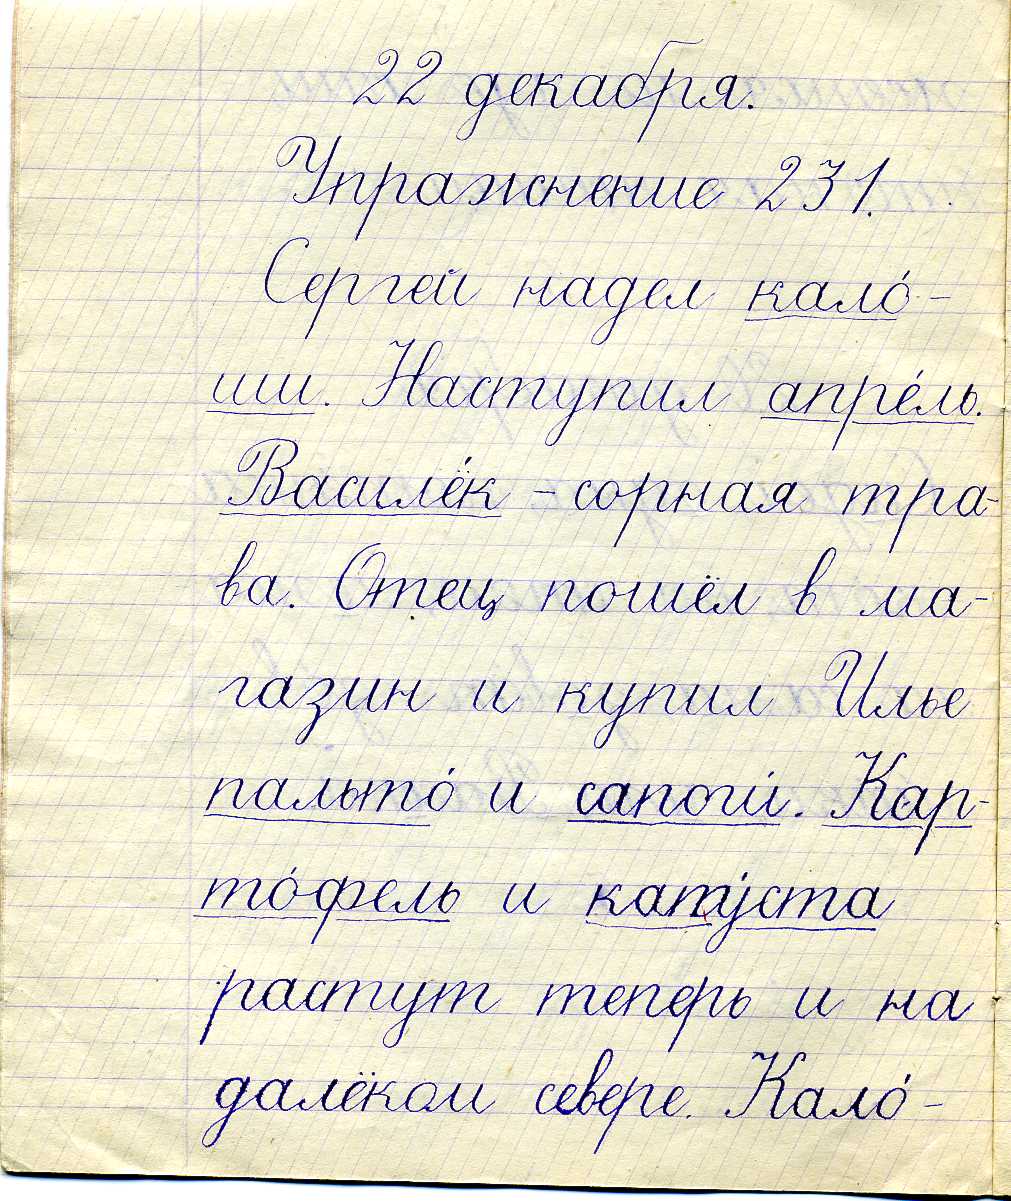 22 декабря.
Упражнение 231.
Сергей надел кало́-
ши. Наступил апре́ль.
Василёк - сорная тра-
ва. Отец пошёл в ма-
газин и купил Илье
пальто́ и сапоги́. Кар-
то́фель и капу́ста
растут теперь и на
далёком севере. Кало́-